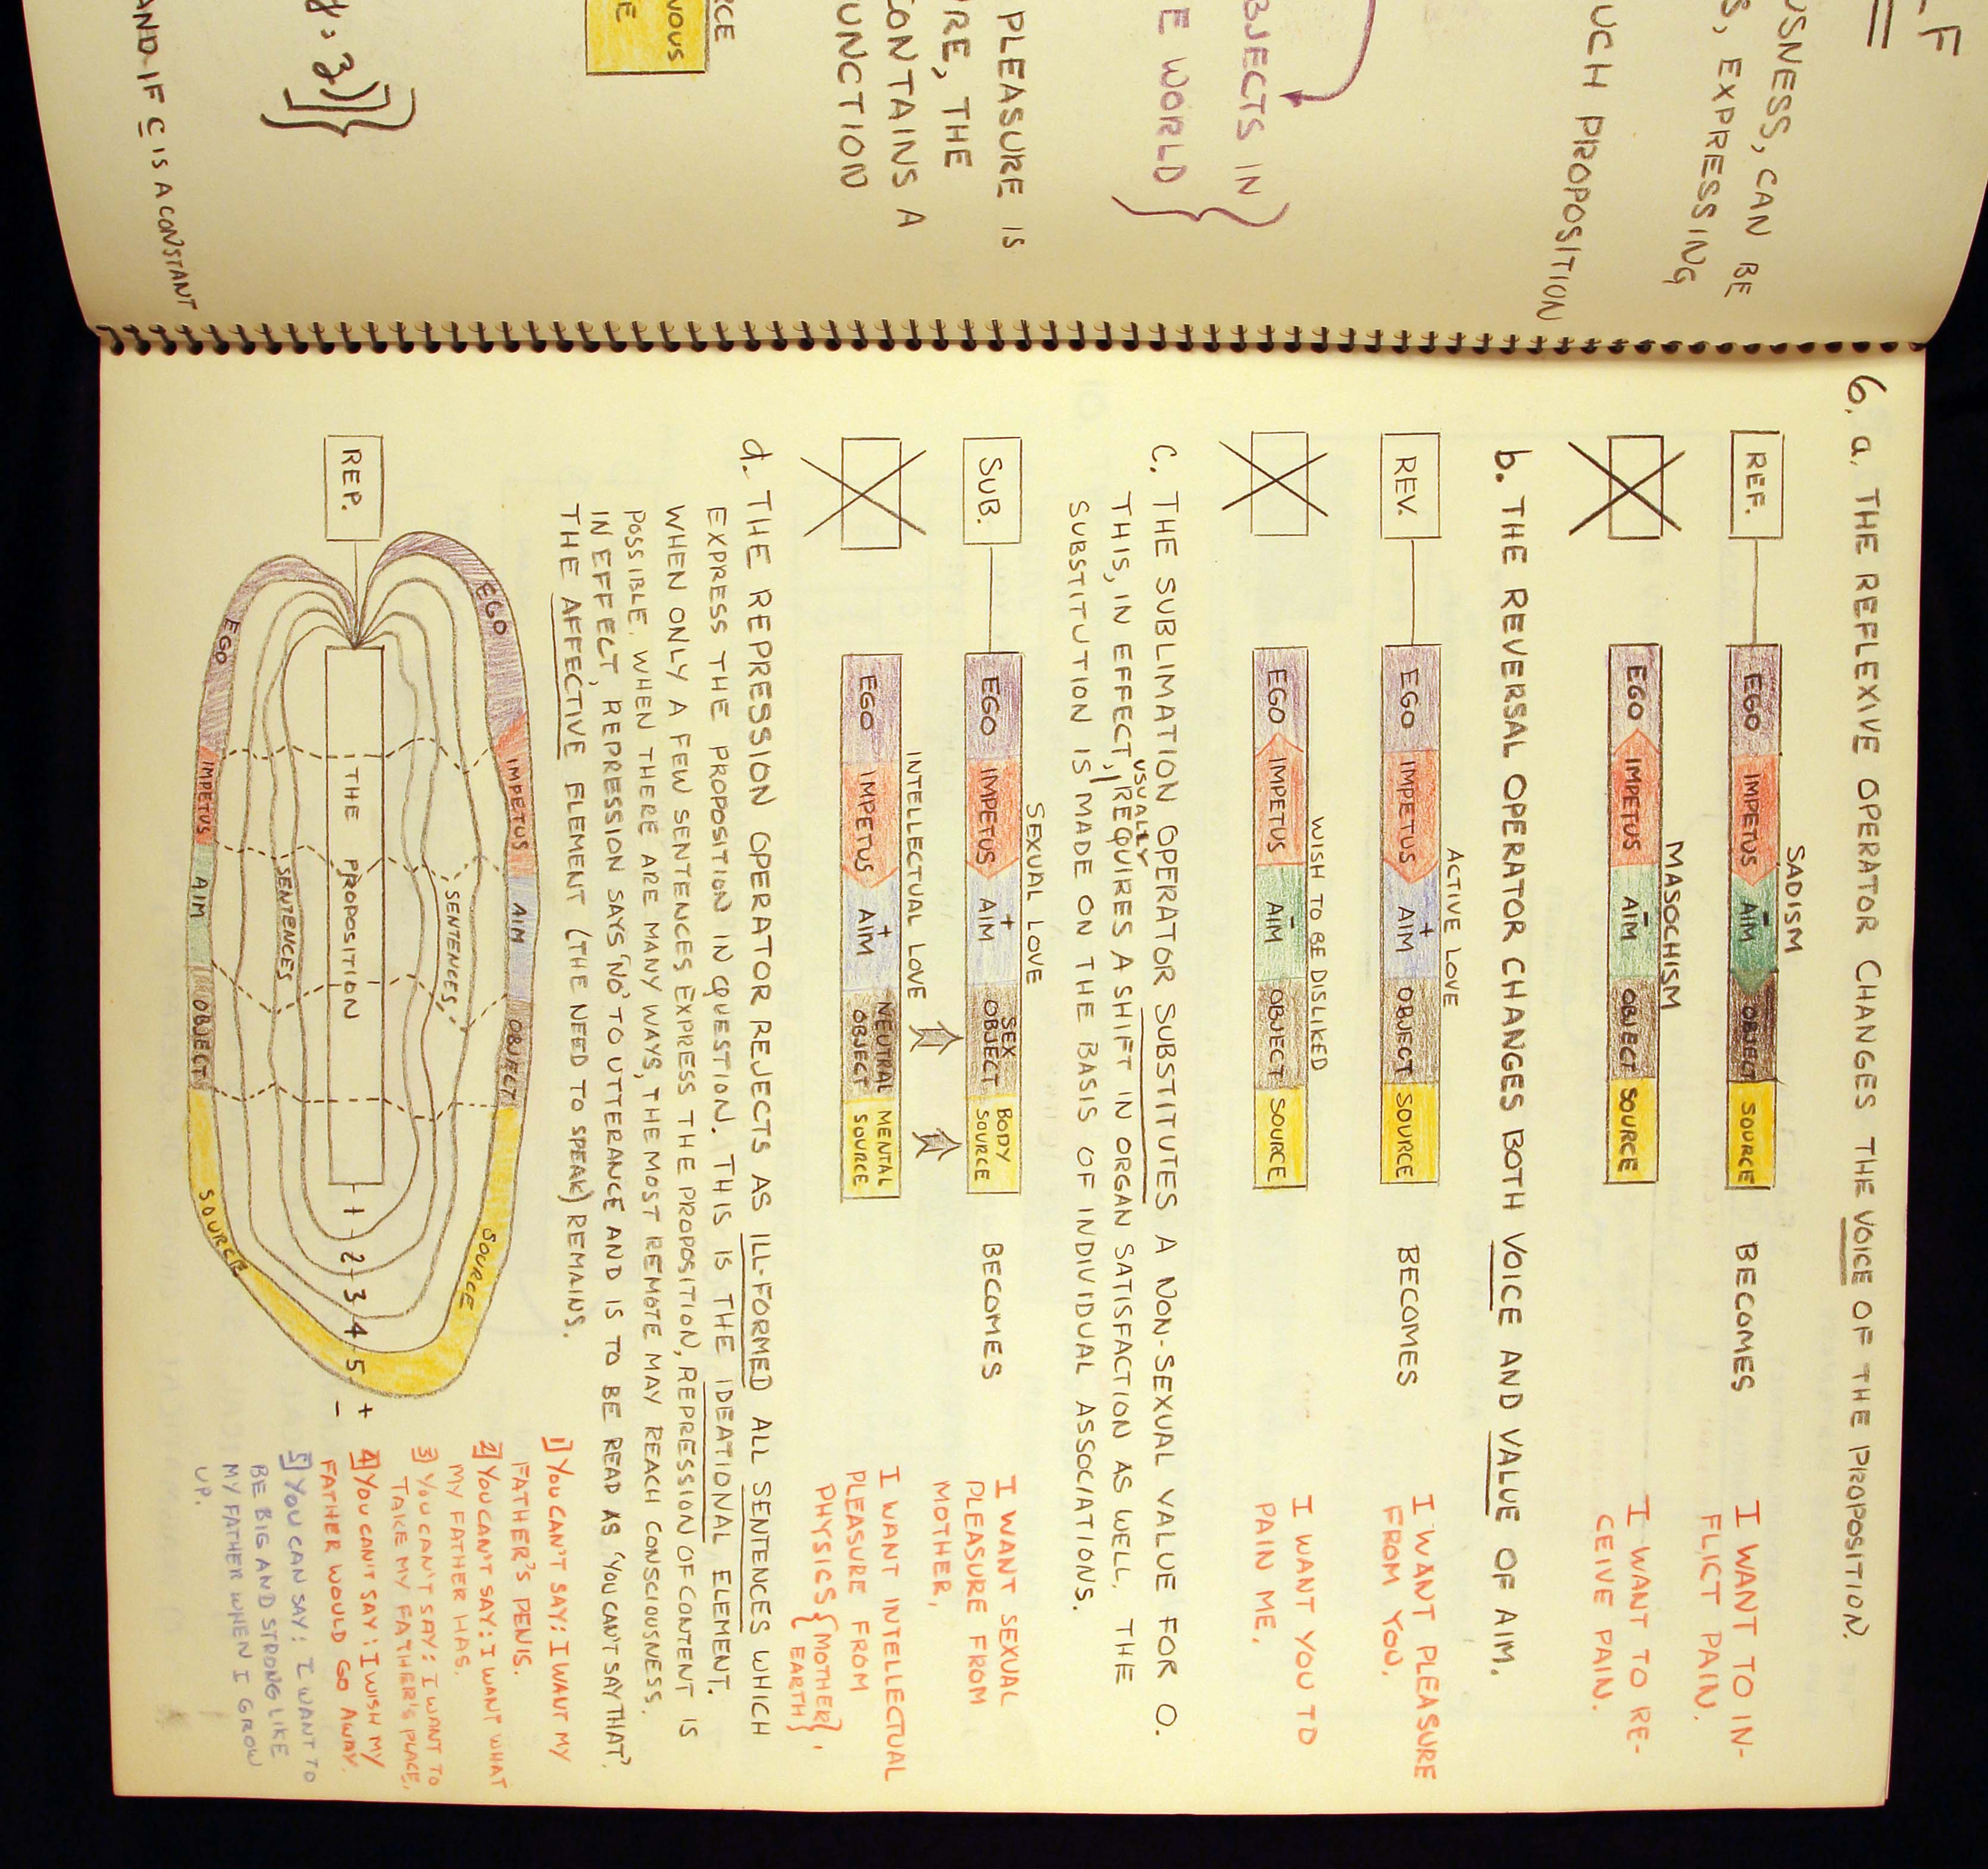 LF
USNESS, CAN BE
S, EXPRESSING
UCH PROPOSITION
BJECTS IN
E WORLD
PLEASURE IS
RE, THE
CONTAINS A
UNCTION
RCE
NOUS
E
AND IF C IS A CONSTANT
6. a. THE REFLEXIVE OPERATOR CHANGES THE VOICE OF THE PROPOSITION.
SADISM
REF. EGO IMPETUS - AIM OBJECT SOURCE BECOMES
I WANT TO IN-
FLICT PAIN.
MASOCHISM
EGO IMPETUS - AIM OBJECT SOURCE
I WANT TO RE-
CEIVE PAIN.
b. THE REVERSAL OPERATOR CHANGES BOTH VOICE AND VALUE OF AIM.
ACTIVE LOVE
REV. EGO IMPETUS + AIM OBJECT SOURCE BECOMES
I WANT PLEASURE
FROM YOU.
WISH TO BE DISLIKED
EGO IMPETUS - AIM OBJECT SOURCE
I WANT YOU TO
PAIN ME.
C. THE SUBLIMATION OPERATOR SUBSTITUTES A NON-SEXUAL VALUE FOR O.
THIS, IN EFFECT, USUALLY REQUIRES A SHIFT IN ORGAN SATISFACTION AS WELL. THE
SUBSTITUTION IS MADE ON THE BASIS OF INDIVIDUAL ASSOCIATIONS.
SEXUAL LOVE
SUB. EGO IMPETUS + AIM SEX OBJECT BODY SOURCE BECOMES
I WANT SEXUAL
PLEASURE FROM
MOTHER.
INTELLECTUAL LOVE
EGO IMPETUS + AIM NEUTRAL OBJECT MENTAL SOURCE
I WANT INTELLECTUAL
PLEASURE FROM
PHYSICS {MOTHER EARTH}.
d. THE REPRESSION OPERATOR REJECTS AS ILL-FORMED ALL SENTENCES WHICH
EXPRESS THE PROPOSITION IN QUESTION. THIS IS THE IDEATIONAL ELEMENT.
WHEN ONLY A FEW SENTENCES EXPRESS THE PROPOSITION, REPRESSION OF CONTENT IS
POSSIBLE. WHEN THERE ARE MANY WAYS, THE MOST REMOTE MAY REACH CONSCIOUSNESS.
IN EFFECT, REPRESSION SAYS 'NO' TO UTTERANCE AND IS TO BE READ AS 'YOU CAN'T SAY THAT'.
THE AFFECTIVE ELEMENT (THE NEED TO SPEAK) REMAINS.
EGO IMPETUS AIM OBJECT SOURCE
SENTENCES
REP. THE PROPOSITION 1 2 3 4 5 + -
SENTENCES
EGO IMPETUS AIM OBJECT SOURCE
1] YOU CAN'T SAY: I WANT MY
FATHER'S PENIS.
2] YOU CAN'T SAY: I WANT WHAT
MY FATHER HAS.
3] YOU CAN'T SAY: I WANT TO
TAKE MY FATHER'S PLACE.
4] YOU CAN'T SAY: I WISH MY
FATHER WOULD GO AWAY.
5] YOU CAN SAY: I WANT TO
BE BIG AND STRONG LIKE
MY FATHER WHEN I GROW
UP.